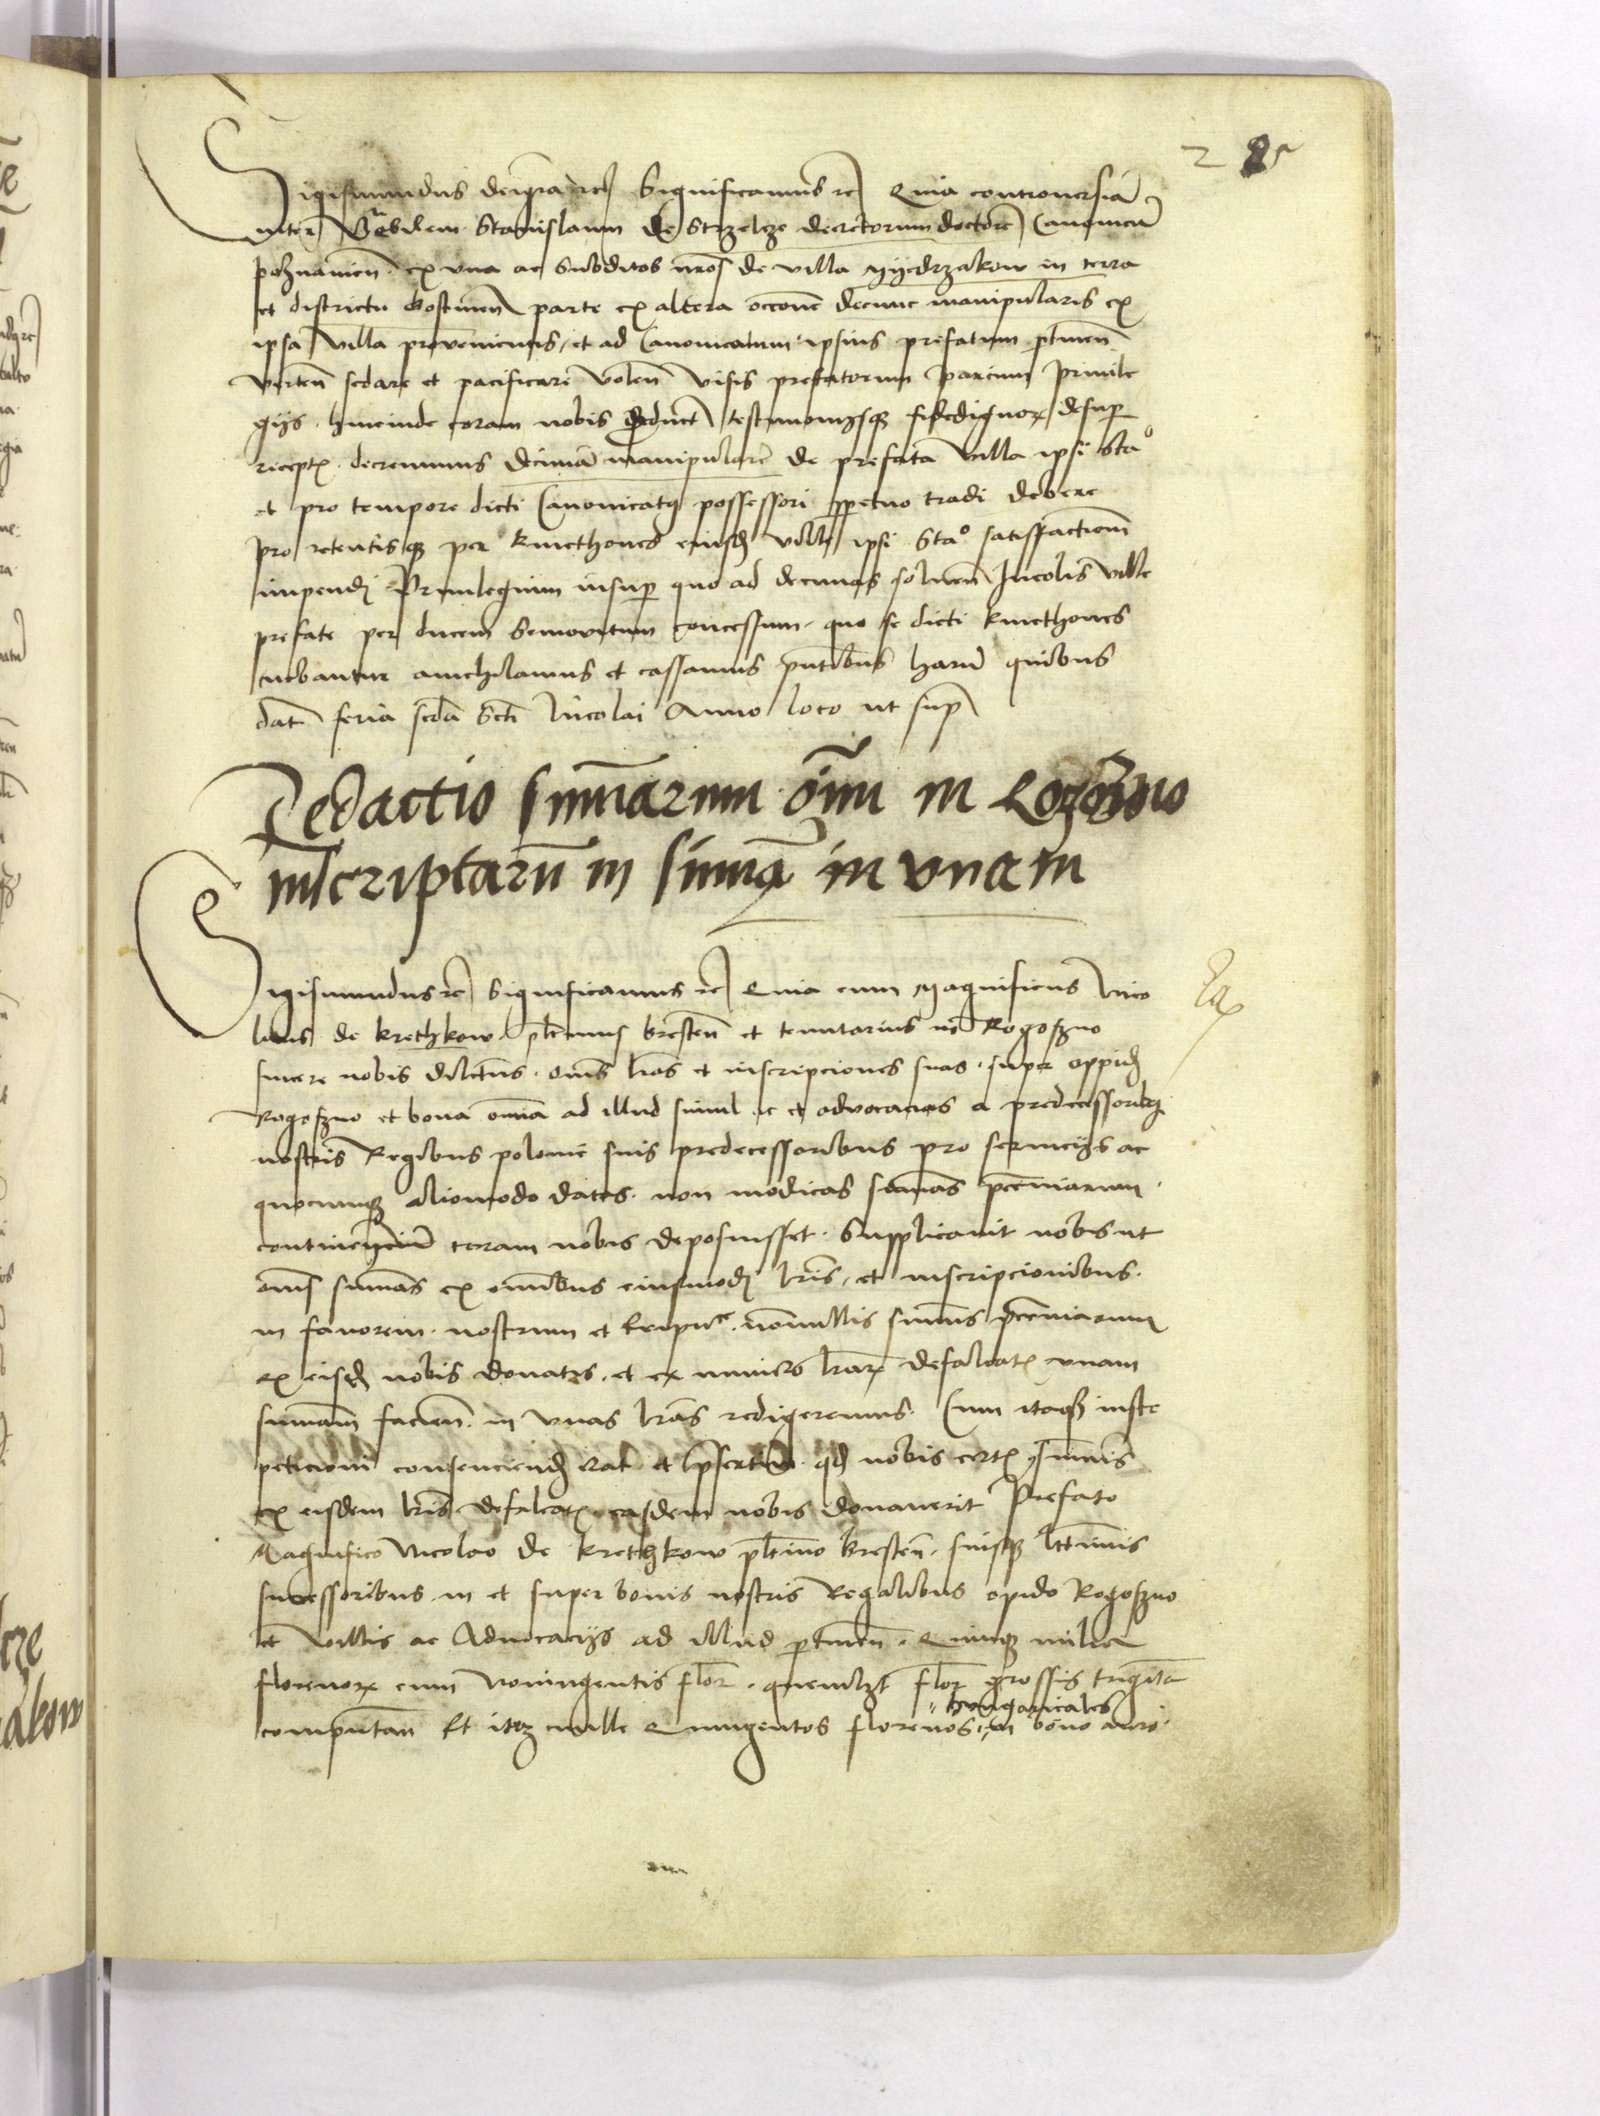 Sigismundus dei gra etc Significamus etc Quia controversiā
inter Venbilem Stanislaum de Strzelcze decretorum doctorē Canonicū
poznanien̄ ex una ac Subditos nr̄os de villa Myedrzakow in terra
et districtu Gostinen̄ parte ex altera occōne decime manipularis ex
ipsa Villa provenientis et ad Canonicatum ipsius prefatum ptinen̄
verten̄ sedare et pacificare volen̄ visis prefatorum parcium privile
gijs hincinde coram nobis product testimonijsqꝫ fidedignoꝝ desuꝑ
receptꝭ decrevimus decimā manipularē de prefata Villa ipsi Stao
et pro tempore dicti Canonicatꝰ possessori ꝑpetuo tradi debere
pro retentisqꝫ per kmethones eiusdꝫ ville ipsi Stao satisfactionē
impendi Privilegium insuꝑ quo ad decimas solven̄ Incolis ville
prefate per ducem Semovitum concessum quo se dicti kmethones
tuebantur anichilamus et cassamus pn̄tibus harū quibus
dat feria scda Scti Nicolai Anno loco ut supra
Redactio sum̄arum om̄iu in Rogozno
inscriptarū in sum̄a in unam
Sigismundus etc Significamus etc Quia cum Magnificus Nico
laus de krethkow pltinus bresten̄ et tenutarius nr̄ Rogoszno
sincere nobis dilectus om̄s lr̄as et inscripciones suas super oppidū
Rogoszno et bona om̄ia ad illud simul ac et advocacias a predecessoribꝫ
nostris Regibus polonie suis predecessoribus pro servicijs ac
quocumqꝫ aliomodo datas non modicas sum̄as pecuniarum
continenciū coram nobis deposuisset Supplicavit nobis ut
om̄s sum̄as ex om̄ibus eiusmodi lr̄is et inscripcionibus
in favorem nostrum et Reipuce nōnullis sum̄is pecuniarum
ex eisdꝫ nobis donatis et ex numero lr̄arꝫ defalcatꝭ unam
sum̄am facien̄ in unas lr̄as redigeremus Cum itaqꝫ iuste
peticioni consenciendū erat et presertim qd nobis certꝭ sum̄is
ex eisdem lr̄is defalcatꝭ easdem nobis donaverit Prefato
Magnifico Nicolao de krethkow pltino bresten̄ suisqꝫ lttimis
successoribus in et super bonis nostris Regalibus opido Rogoszno
et villis ac Advocacijs ad illud ptinen̄ Quinqꝫ milia
florenorꝫ cum Noningentis flor quemlꝫt flor grossis triginta
computan̄ Et iteꝫ mille Quingentos florenos hungaricales in bono auro